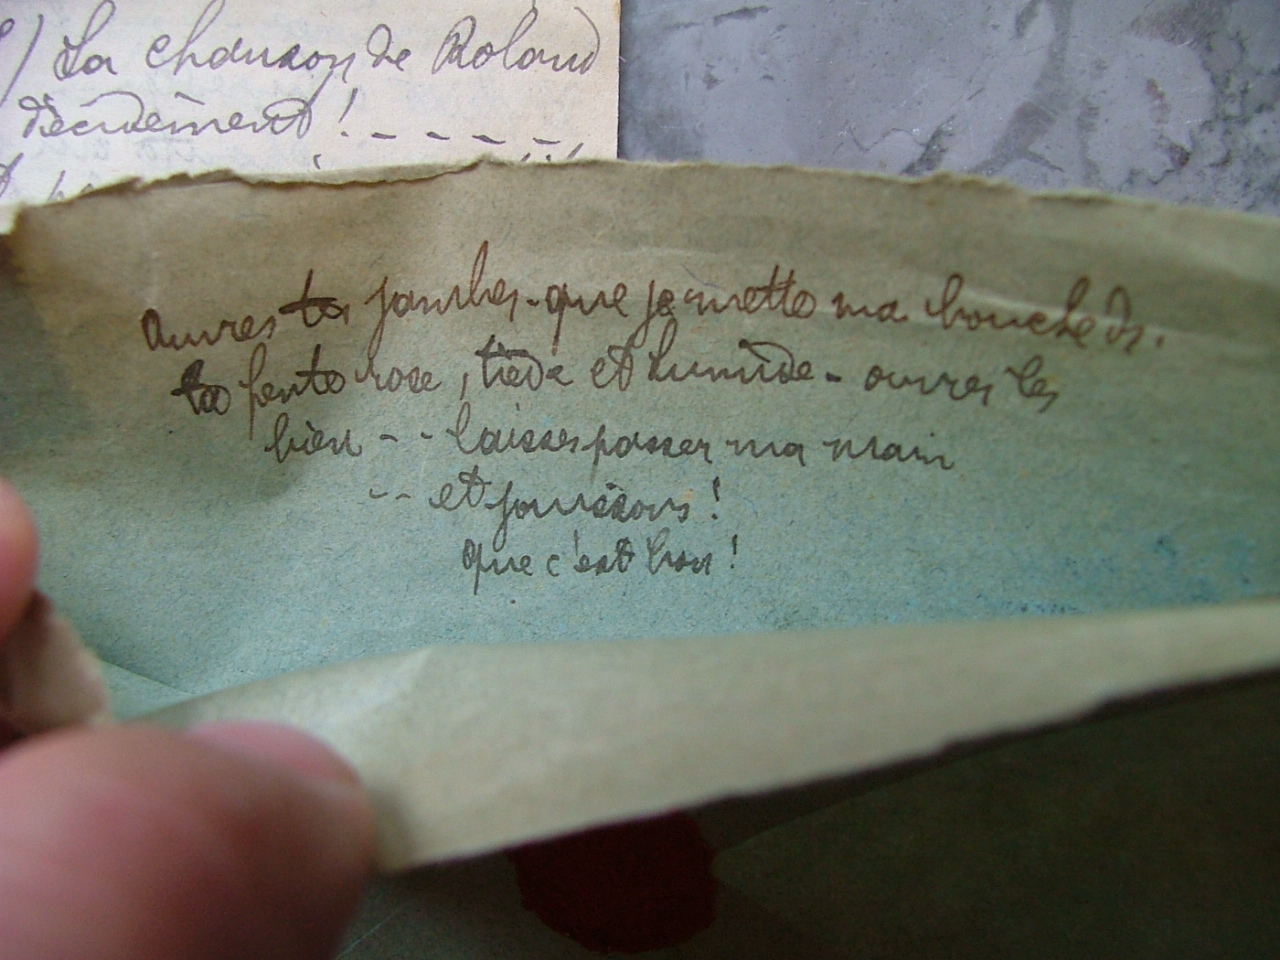 ) La chanson de Roland
décidément ! - - - - -
Ouvres tes jambes - que je mette ma bouche ds.
ta fente rose, tiède et humide - ouvres les
bien - - laisses passer ma main
- - et jouissons !
que c'est bon !